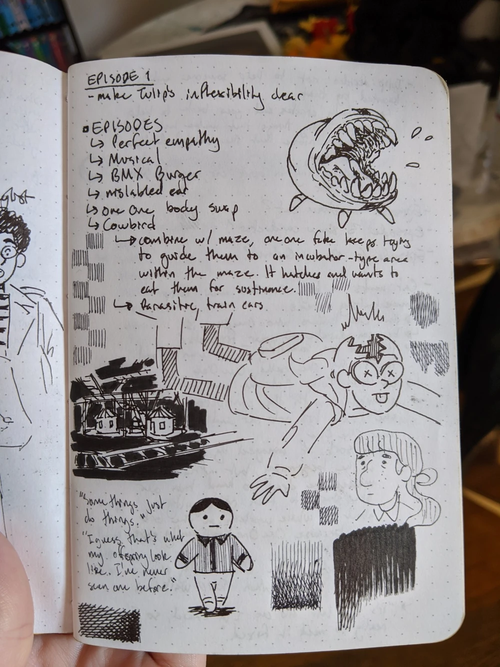 EPISODE 1
- make Tulip's inflexibility clear
EPISODES
↳ Perfect empathy
↳ Musical
↳ BMX Burger
↳ mislabled car
↳ one one body swap
↳ Cowbird
↳ combine w/ maze, one one fake keeps trying
to guide them to an incubator-type area
within the maze. It hatches and wants to
eat them for sustinance.
↳ Parasitic train cars
"Some things just
do things."
"I guess that's what
my
look
like. I've never
seen one before."